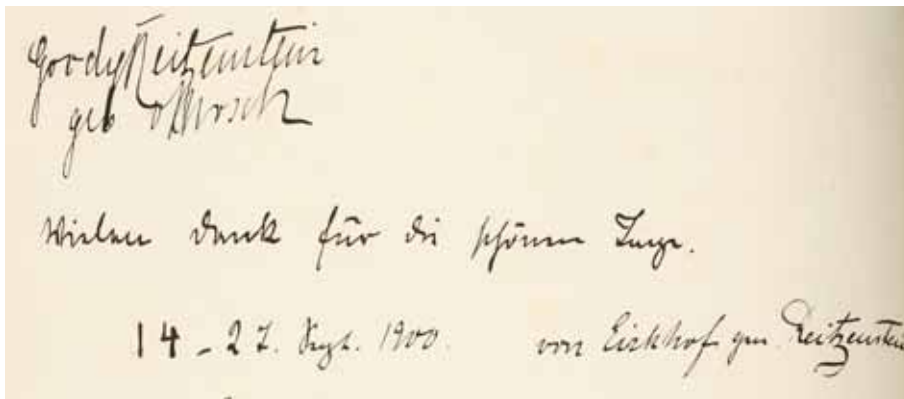 Gordy Reitzenstein
geb v Mosch
Vielen Dank für die schönen Tage.
14 - 27. Sept. 1900. von Eickhof gen Reitzenstein